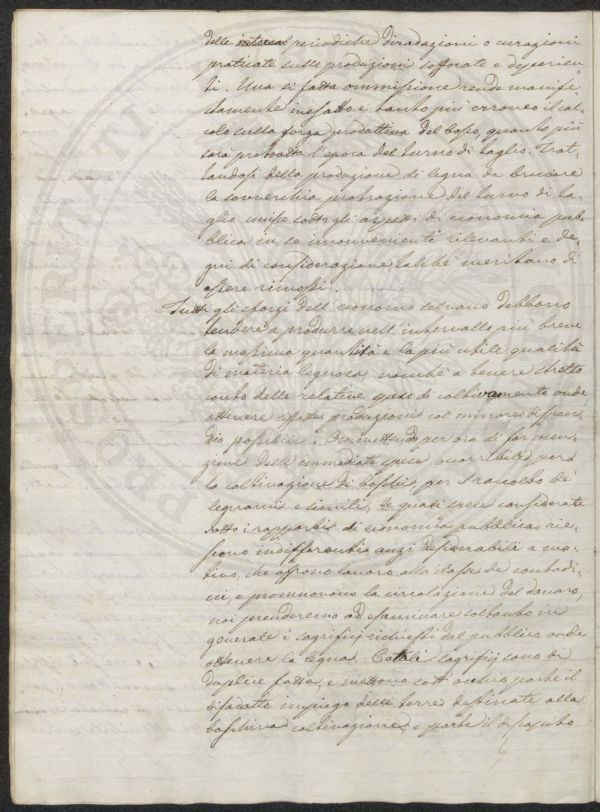 delle periodiche diradazioni o curazioni
praticate sulle produzioni soffocate e deperien-
ti. Una sì fatta ommissione rende manife-
stamente inesatto e tanto più erroneo il cal-
colo sulla forza produttiva del bosco, quanto più
sarà protratta l'epoca del turno di taglio. Trat-
tandosi della produzione di legna da bruciare
la soverchia protrazione del turno di ta-
glio unisce sotto gli aspetti di economia pub-
blica in se inconvenienti rilevanti e de-
gni di considerazione, talché meritano di
essere rimossi.
Tutti gli sforzi dell'economo selvano debbono
tendere a produrre nell'intervallo più breve
la massima quantità e la più utile qualità
di materia legnosa, nonché a tenere stretto
conto delle relative spese di coltivamento onde
ottenere siffatte produzioni col minore dispen-
dio possibile. Ommettendo per ora di far men-
zione delle immediate spese per
la coltivazione di boschi, per il raccolto de'
legnami e simili, le quali spese considerate
sotto i rapporti di economia pubblica rie-
scono indifferenti anzi desiderabili a mo-
tivo, che offrono lavoro alla classe de' contadi-
ni, e promuovono la circolazione del danaro,
noi prenderemo ad esaminare soltanto in
generale i sagrifizj richiesti dal pubblico onde
ottenere la legna. Cotali sagrifizj sono di
duplice fatta, e mettono sott'occhio parte il
disadatto impiego delle terre destinate alla
boschiva coltivazione, e parte il disposto